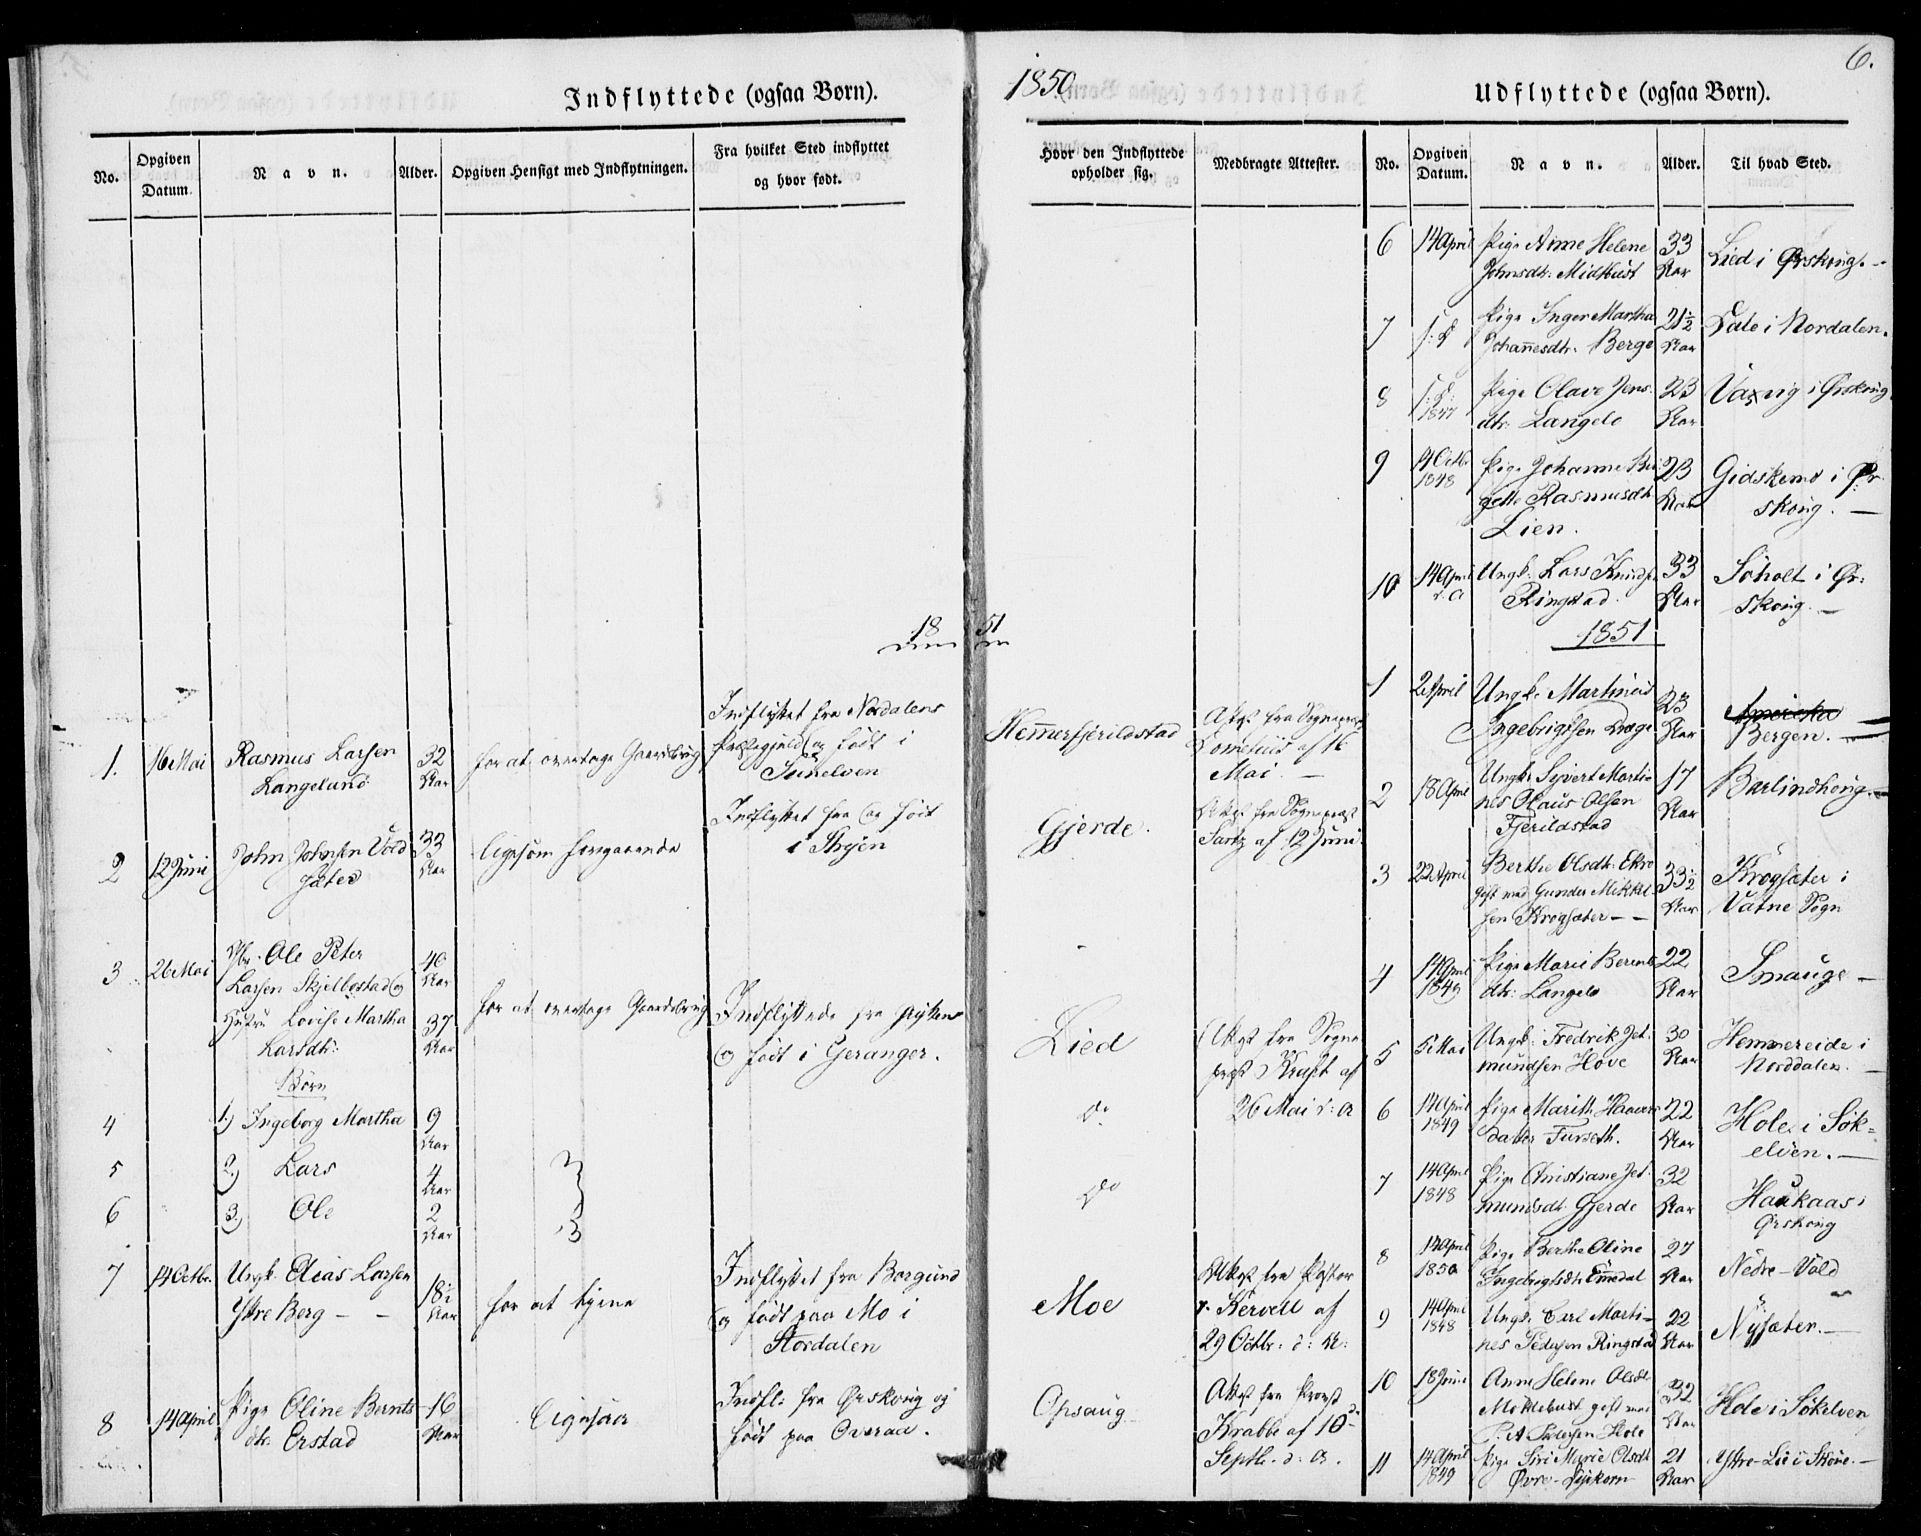 Indflyttede (ogsaa Børn).
No.
Opgiven Datum.
Navn.
Alder.
Opgiven Hensigt med Indflytningen.
Fra hvilket Sted indflyttet
og hvor født.
18
1.
16 Mai
Rasmus Larsen
Langelund
32
Aar
for at overtage Gaardsbrug
Indflyttet fra Nordalens
Præstegjeld og født i
Sunelven
2
12 Juni
John Johnsen Vold
sæter
33
Aar
ligesom foregaaende
Indflyttet fra og født
i Stryen
3
26 Mai
Ole Peter
Larsen Skjellestad og
Hustru Lovise Martha
Larsdtr:
40
Aar
37
Aar
for at overtage Gaardsbrug
Indflyttede fra
og født i Geranger.
Børn
4
1.) Ingeborg Martha
9
Aar
5
2.) Lars
4
Aar
6
3.) Ole
2
Aar
7
14 Octbr.
Ungk. Elias Larsen
Ytre Berg - -
18½
Aar
for at tjene
Indflyttet fra Borgund
og født paa Mo i
Stordalen
8
14 April
Pige Oline Bernts
dtr. Erstad
16
Aar
Ligesaa
Indfl. fra Ørskoug og
født paa Overaa.
1850
6.
Udflyttede (ogsaa Børn).
Hvor den Indflyttede
opholder sig.
Medbragte Attester.
No.
Opgiven Datum.
Navn.
Alder.
Til hvad Sted.
51
Attest fra Sogneprest
af 16
Mai. -
Gjerde.
Attest fra Sogneprest
af 12 Juni
Lied
Attest fra Sogne
prest Kraft af
26 Mai d: A
Do
Do
Moe
Attest fra Pastor
v. Kervell af
29 Octbr. d: A:
Opsaug
Attest fra Provst
Krabbe af 10de
Septbr. d: A.
6
14 April
Pige Anne Helene
Johnsdtr. Midtkust
33
Aar
Lied i Ørskoug. -
7
s: D
Pige Inger Martha
Johannesdtr. Berge
21½
Aar
Dale i Nordalen.
8
s: D:
1847
Pige Olave Jens
dtr. Langelo
23
Aar
i Ørskoug
9
14 Octbr
1848
Pige Johanne Bir
gitte Rasmusdtr
Lien.
23
Aar
Gidskemo i Ør
skoug. -
10
14 April
d. A
Ungk: Lars Knudsen
Ringstad.
33
Aar
Søholt i Ør:
skoug. -
1851
1
2 April
Ungk. Martinus
Ingebrigtsen
23
Aar
Amerika
Bergen. -
2
18 April
Ungk. Syvert Marti
nes Olaus Olsen
Fjerildstad
17
Aar
Barlindhoug. -
3
22 April
Berthe Olsdtr. Ekro
gift med Gunder Mikkel
sen Krogsæter - -
33½
Aar
Krogsæter i
Vatne Sogn
4
14 April
1849
Pige Marie Bernts
dtr: Langelo
22
Aar
Smauge -
5
5 Mai
Ungk: Fredrik Jet
mundsen Hove
30
Aar
Hemmereide i
Norddalen. -
6
14 April
1849
Pige Marith Haavers
datter Furseth.
22
Aar
Hole i Søk-
elven. -
7
14 April
1848
Pige Christiane Jet
mundsdtr. Gjerde
32
Aar
Haukaas i
Ørskoug
8
14 April
1850
Pige Berthe Oline
Ingebrigtsdtr Emdal
27
Aar
Nedre-Vold
9
14 April
1848
Ungk. Carl Marti-
nes Pedersen Ringstad
22
Aar
Nysæter. -
10
18 Juni
Anne Helene Olsdtr
Mittebust gift med
P. A Pedersen Hole
32
Aar
Hole i Søkelven
11
14 April
1849
Pige Siri Marie Olsdtr
Øvre-
21
Aar
Ytre-Lie i Skore. -